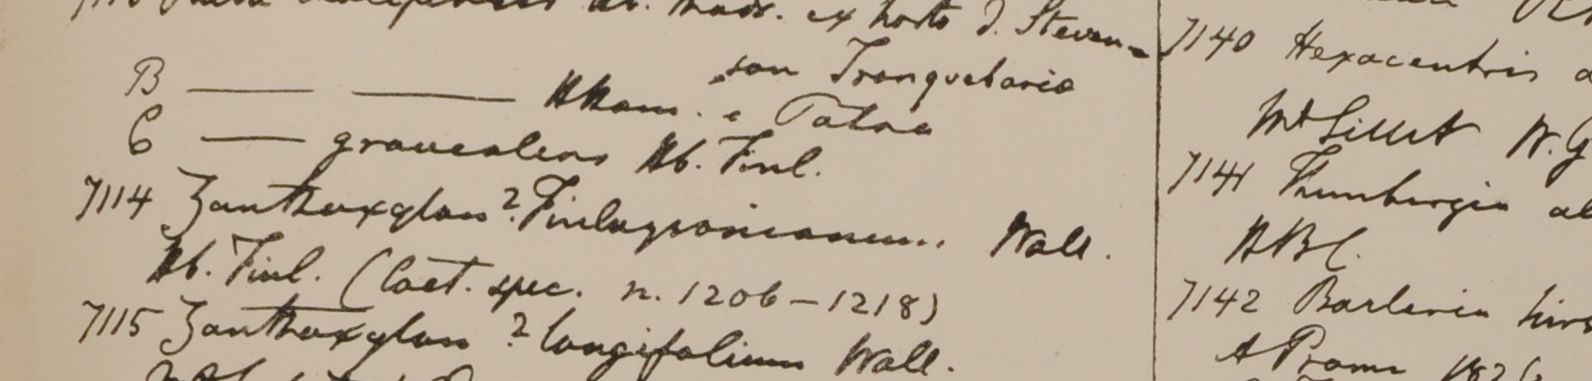 Hb. Madr. ex horto D. Steven=
son Tranquebaria
B — — HHam. e Patna
C — graveolens Hb. Finl.
7114 Zanthoxylon? Finlaysonianum. Wall.
Hb. Finl. (Caet. spec. n. 1206-1218)
7115 Zanthoxylon? longifolium Wall.
7140 Hexacentris a
Mt Sillet W. G
7141 Thunbergia al
HBC.
7142 Barleria hirs
A Prome 1826